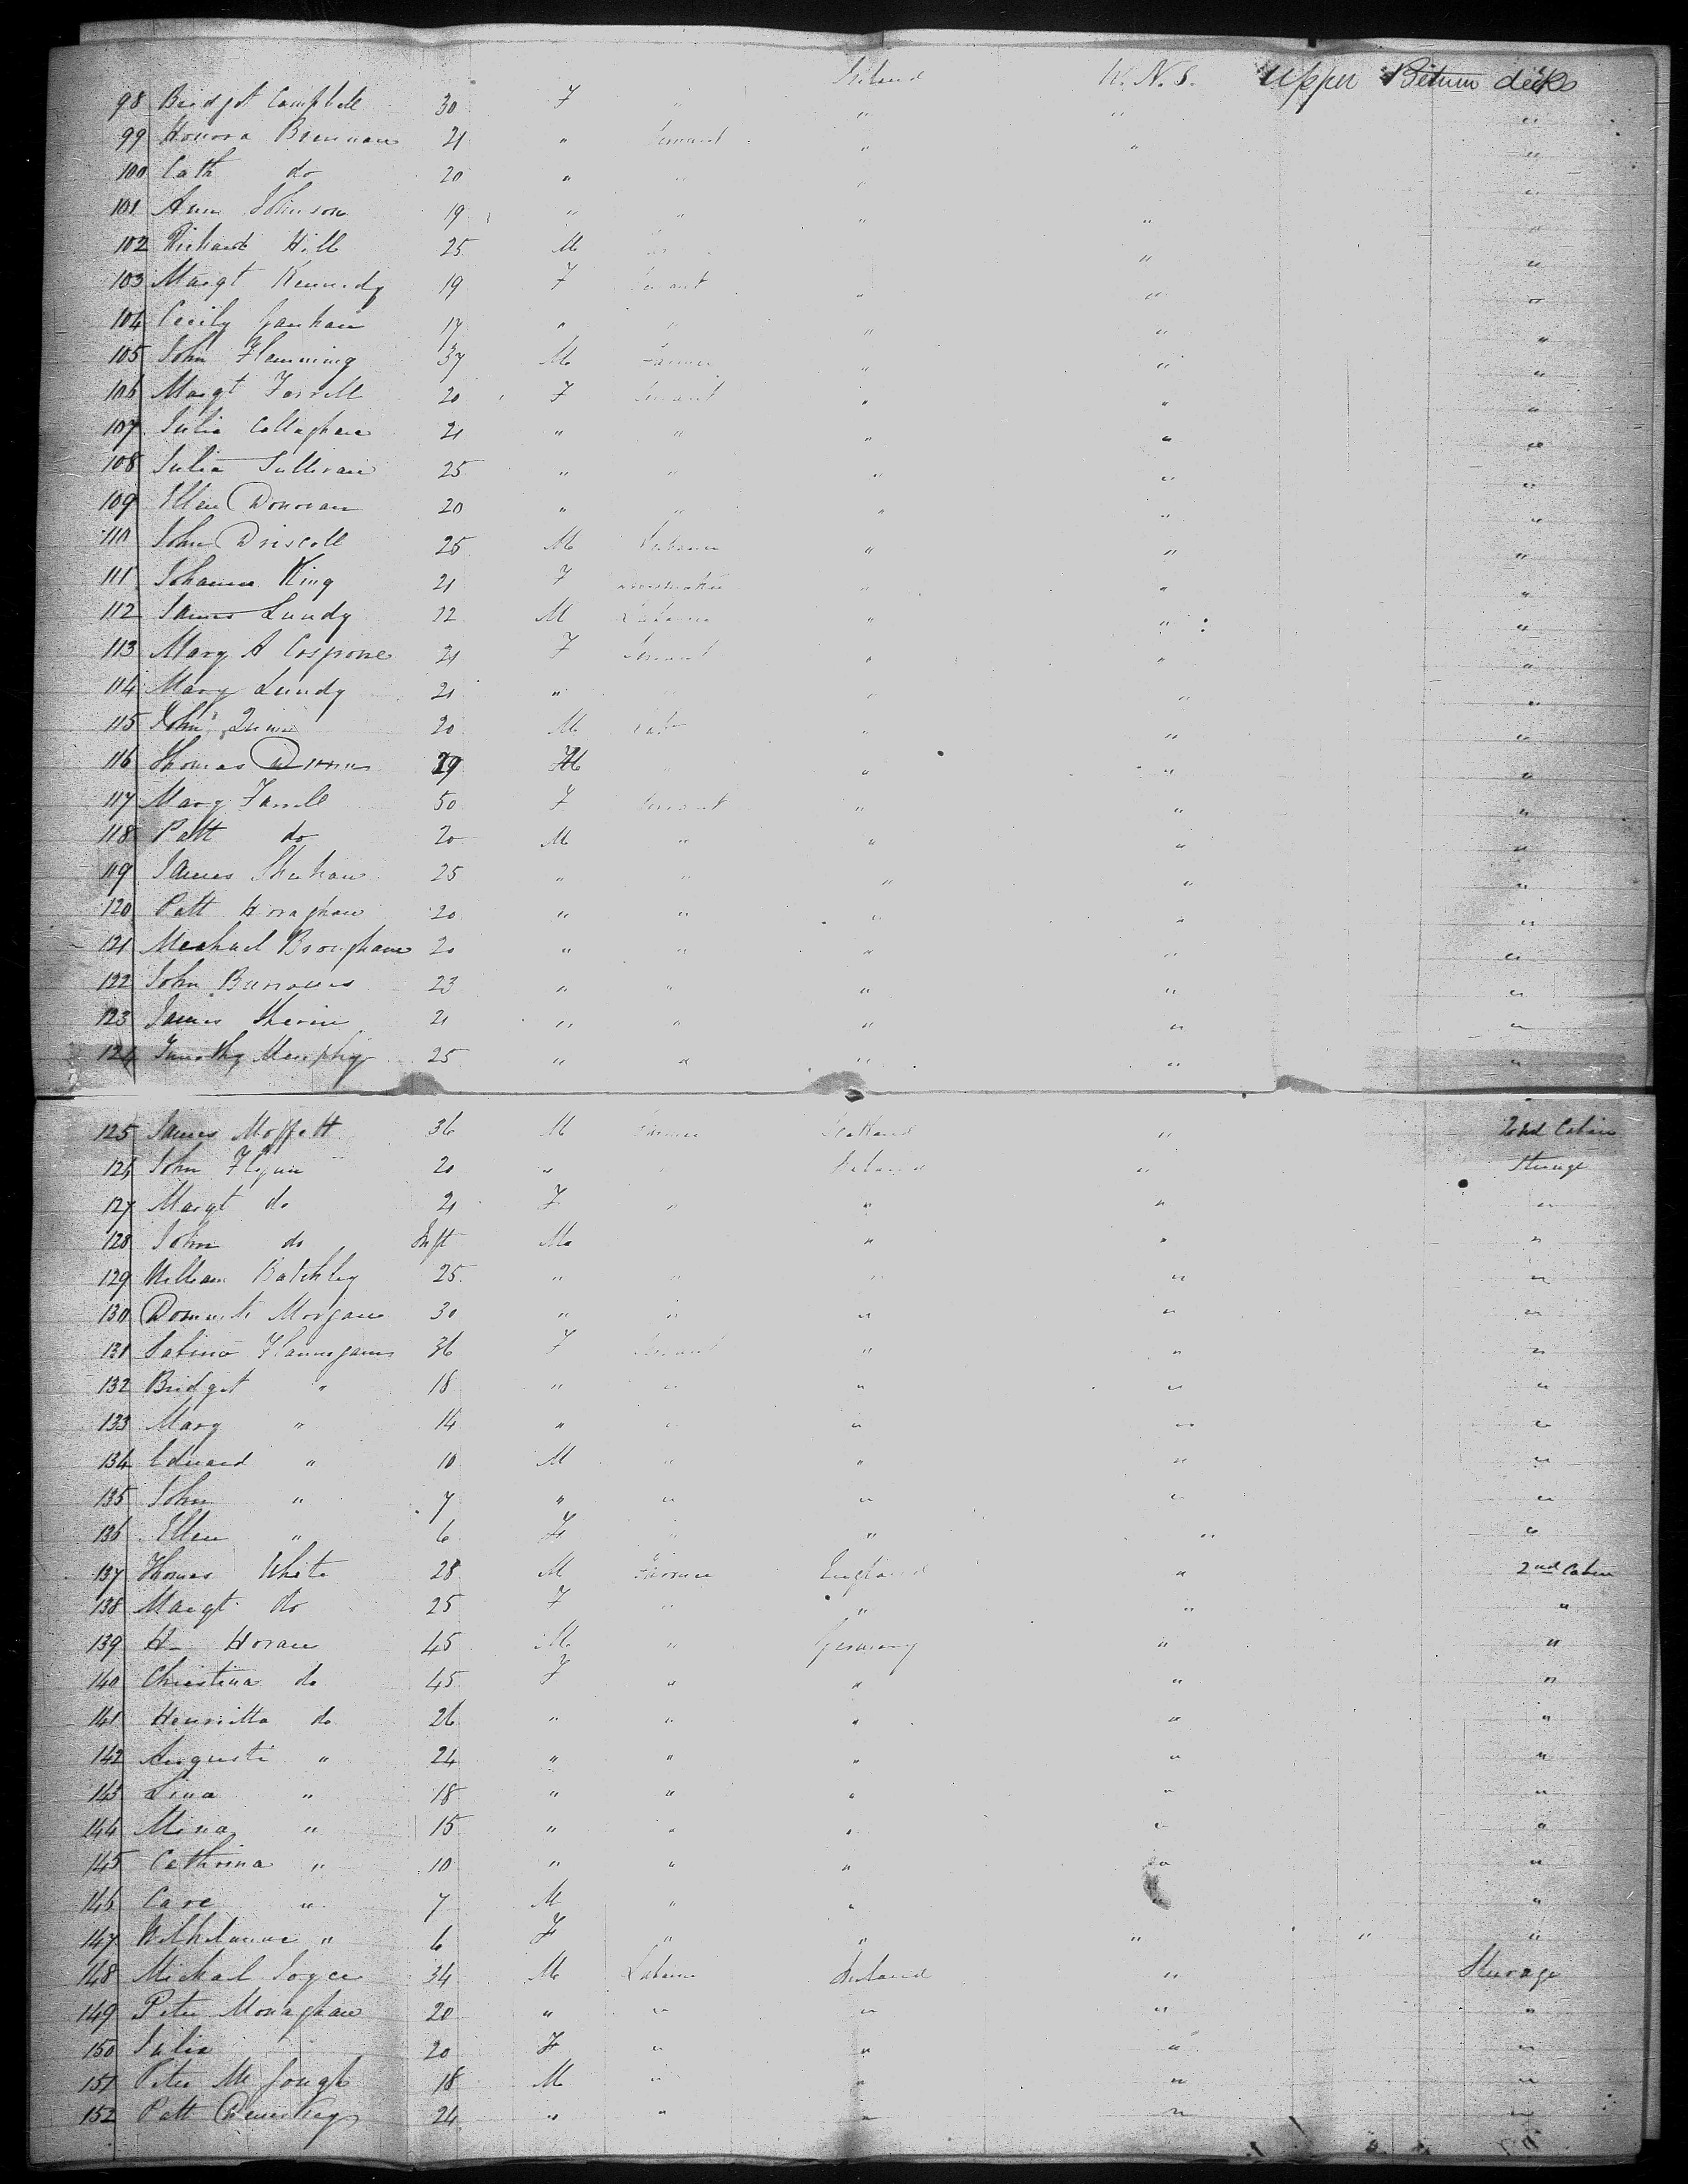 Ireland U.N.S. Upper Betwin decks
98 Bridget Campbell 30 F " " "
99 Honora Brennan 21 " Servant " " "
100 Cath do 20 " " " "
101 Ann Johnson 19 " " " " "
102 Richard Hill 25 M " "
103 Margt Kennedy 19 F Servant " " "
104 Cecily 17 " " " " "
105 John Flamming 37 M Farmer " " "
106 Margt Farrell 20 F Servant " " "
107 Julia Callaghan 21 " " " " "
108 Julia Sullivan 25 " " " " "
109 Ellen Donovan 20 " " " " "
110 John Driscoll 25 M Labourer " " "
111 Johanna King 21 F Dressmaker " " "
112 James Lundy 22 M Labourer " " "
113 Mary A Cospone 21 F Servant " " "
114 Mary Lundy 21 " " " "
115 John Quinn 20 M Lab " " "
116 Thomas Dunn 29 M " " "
117 Mary Farrell 50 F Servant " " "
118 Patt do 20 M " " " "
119 James Shehan 25 " " " " "
120 Patt Horaghan 20 " " " " "
121 Meahael Brougham 20 " " " " "
122 John Burrowes 23 " " " " "
123 James 21 " " " " "
124 Timothy Murphy 25 " " " " "
125 James Moffett 36 M Farmer Scotland " 2nd Cabin
126 John Flynn 20 " " Ireland " Sterage
127 Margt do 21 F " " " "
128 John do Inft M " " "
129 William Batchley 25 " " " " "
130 Dominik Morgan 30 " " " " "
131 Sabina Flannegann 36 F Servant " " "
132 Bridget " 18 " " " " "
133 Mary " 14 " " " " "
134 Edward " 10 M " " " "
135 John " 7 " " " " "
136 Ellen " 6 F " " " "
137 Thomas White 28 M Farmer England " 2nd Cabin
138 Margt do 25 F " " " "
139 H Horane 45 M " Germany " "
140 Christina do 45 F " " " "
141 Henrietta do 26 " " " " "
142 Augusti " 24 " " " " "
143 Lina " 18 " " " " "
144 Mina " 15 " " " " "
145 Cathrina " 10 " " " " "
146 Care " 7 M " " " "
147 Wilhelmine " 6 F " " " " "
148 Michal Joyce 34 M Labourer Ireland " Sterage
149 Peter Monaghan 20 " " " " "
150 Julia 20 F " " " "
151 Peter Mc Gough 18 M " " " "
152 Patt 24 " " " " "